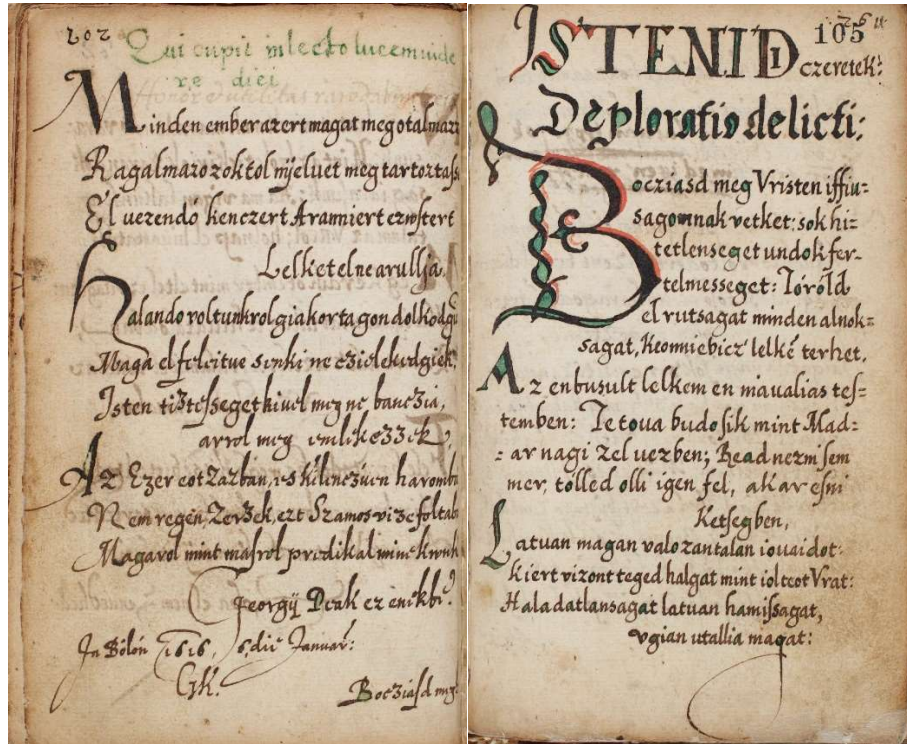 202
Qui cupit in lecto lucem uide
re diei
Minden ember azert magat megotalmazz
Ragalmazozoktol nyeluet meg tartoztass
El uezendö kenczert Aramiert
Lelket el ne arullja,
Halando voltunkrol giakorta gondolkodg
Maga el feleitue senki ne
Isten tiztesseget kiuel meg ne banczia,
arrol meg emlikezzek,
Az Ezer eot Zazban, es kilenczuen haromba
Nem regen Zerzek, ezt Szamos vize folta
Magarol mint masrol predikal
Georgij Deak ez enikbi
In Bölön 1616, 6, die Januar:
GK.
Bocziasd meg
105
ISTENI DI
czeretek:
Deploratio delicti:
Bocziasd meg Vr isten iffiu=
sagomnak vetket: sok hi=
tetlenseget undok fer=
telmesseget: Töröld
el rutsagat minden alnok=
sagat, Keonniebicz lelkē terhet,
Az en busult lelkem en niaualias tes=
temben: Te toua budosik mint Mad=
=ar nagi zel uezben; Read nezni sem
mer, tölled olli igen fel, akar esni
Ketsegben,
Latuan magan valo zantalan iouaidot:
Kiert vizont teged halgat mint iolteot Vrat:
Haladatlansagat latuan hamissagat,
vgian utallia magat: